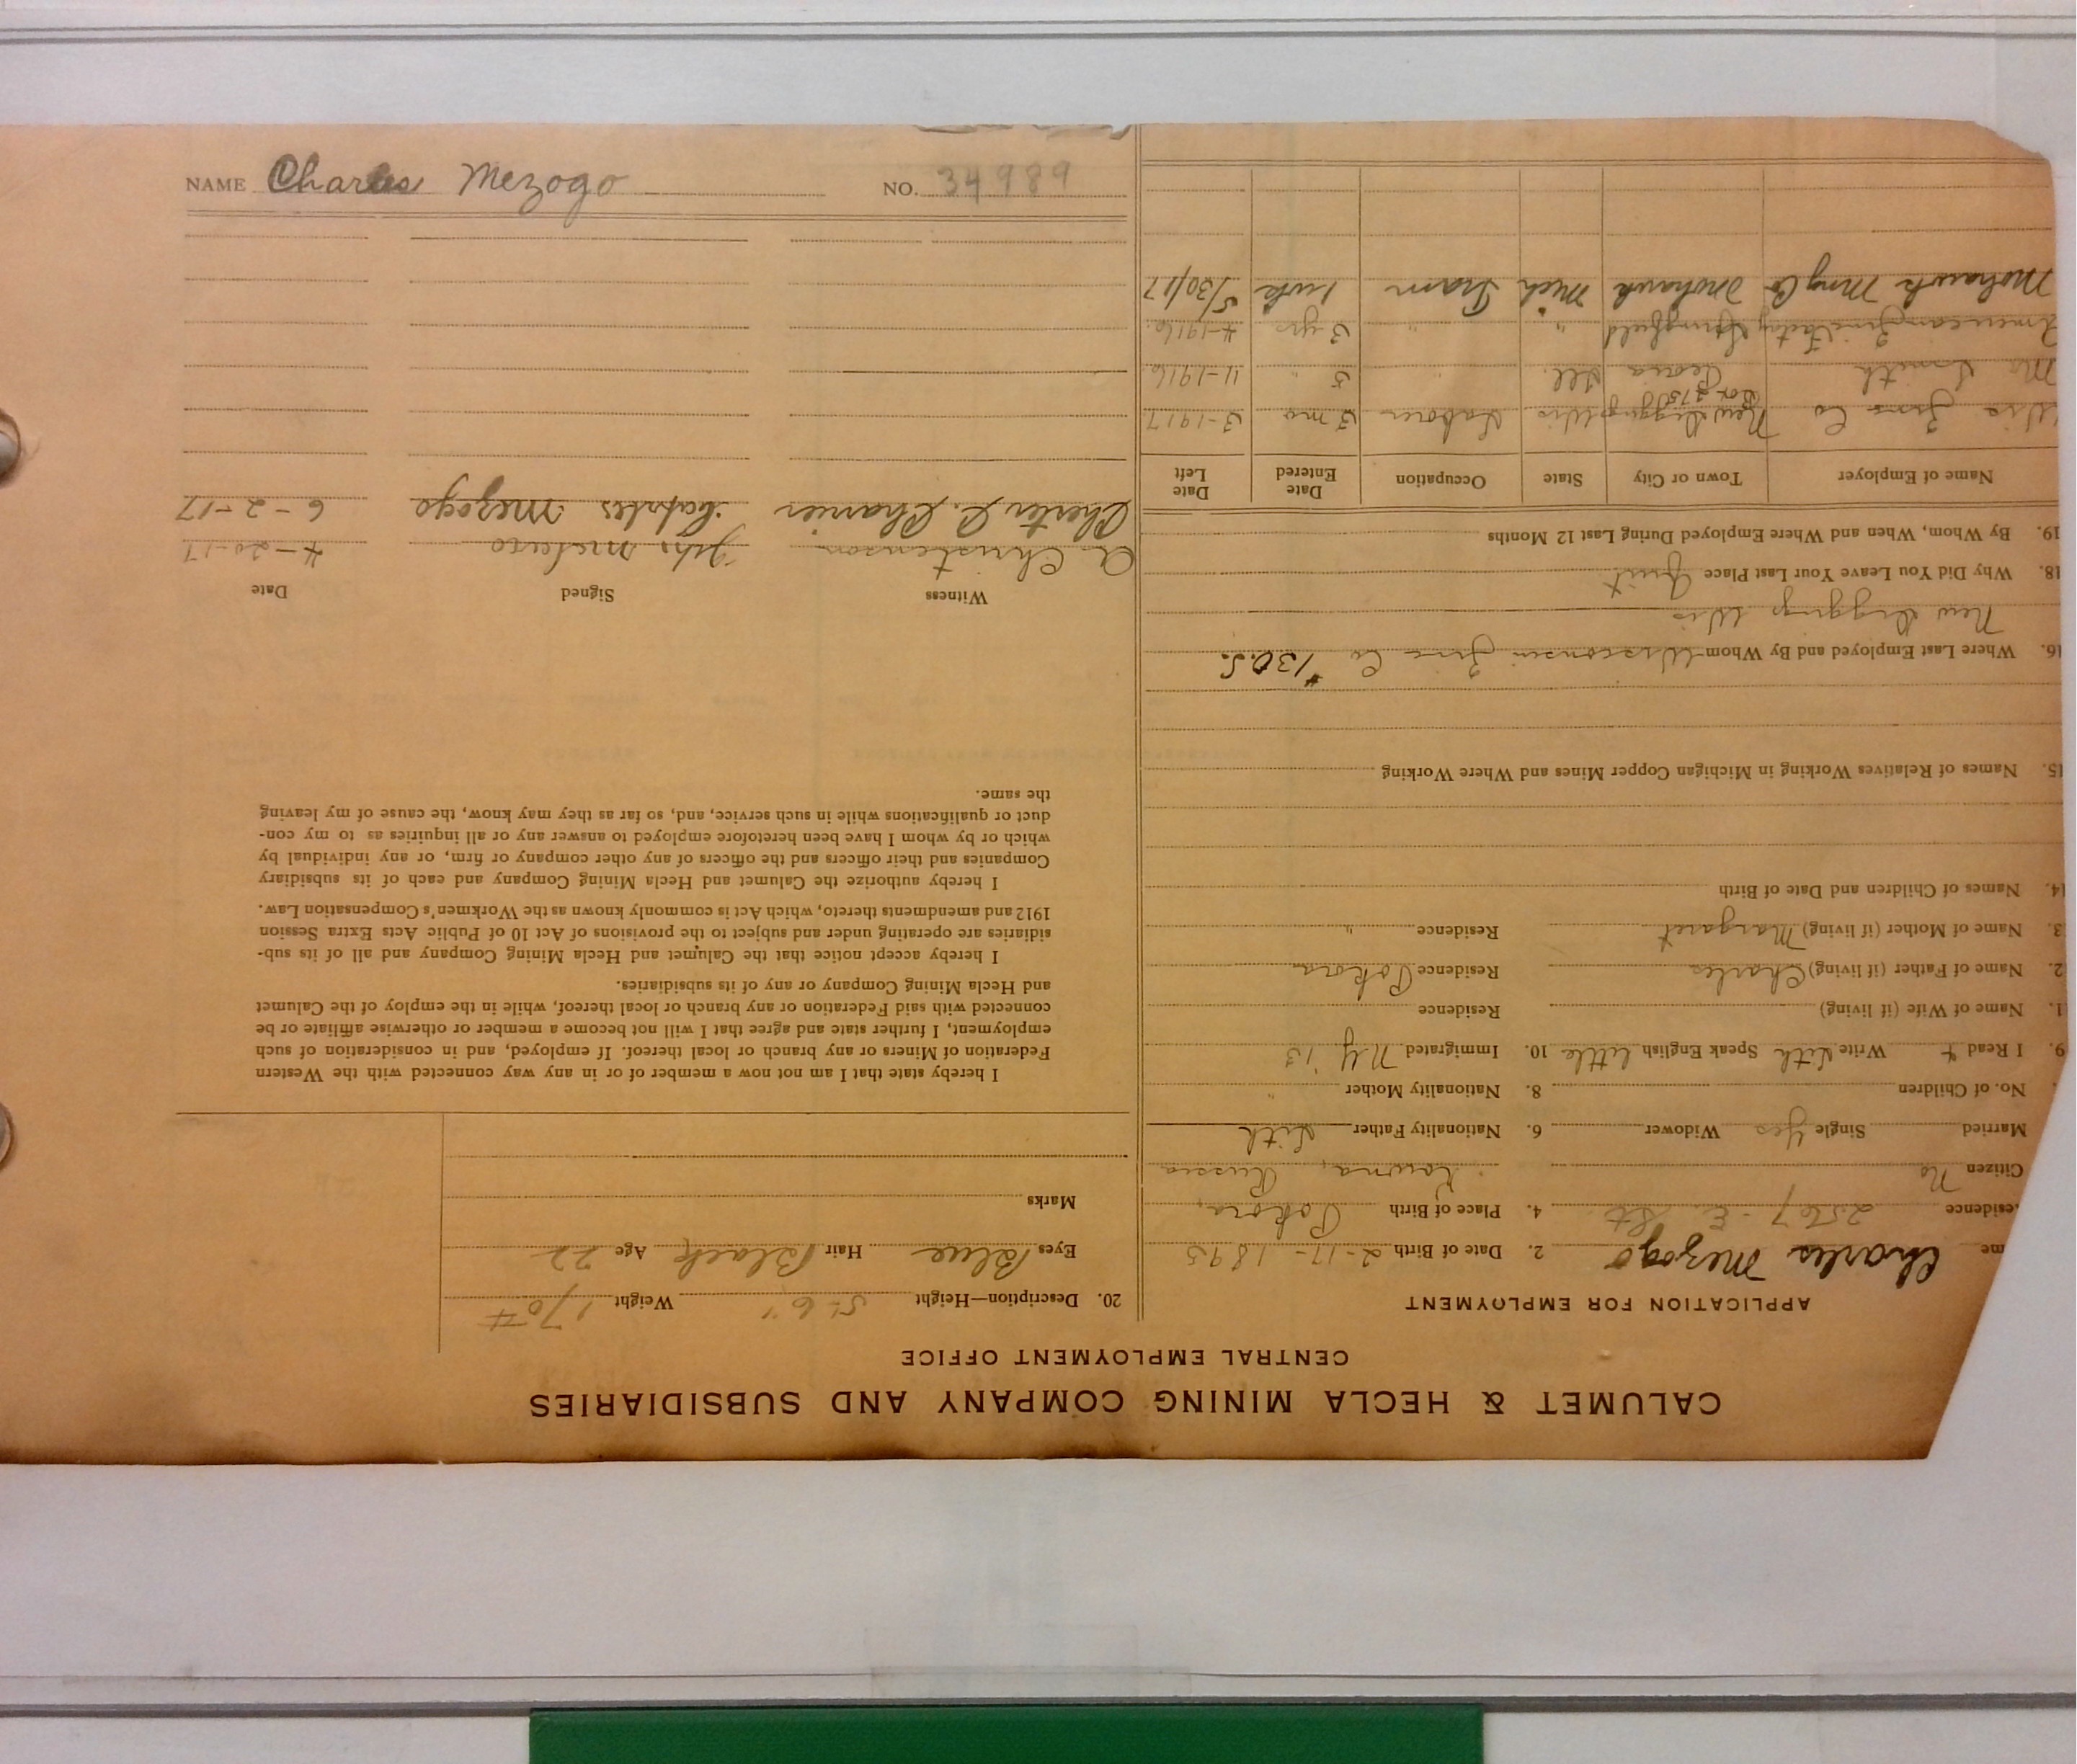 NAME Charles Mezogo NO. 34989
CALUMET & HECLA MINING COMPANY AND SUBSIDIARIES
CENTRAL EMPLOYMENT OFFICE
APPLICATION FOR EMPLOYMENT
me Charles Mezogo 2. Date of Birth 2-17-1895
sidence 2567-E St 4. Place of Birth Pokora,
Citizen No Kowna, Russia
Married Single Yes Widower 6. Nationality Father Lith
No. of Children 8. Nationality Mother "
9. I Read + Write Lith Speak English little 10. Immigrated N.Y. '13
1. Name of Wife (if living) Residence
2. Name of Father (if living) Charles Residence Pokora
3. Name of Mother (if living) Margaret Residence "
14. Names of Children and Date of Birth
15. Names of Relatives Working in Michigan Copper Mines and Where Working
16. Where Last Employed and By Whom Wisconsin Zinc Co #130.S.
New Diggings Wis
18. Why Did You Leave Your Last Place Quit
19. By Whom, When and Where Employed During Last 12 Months
Name of Employer Town or City State Occupation Date Entered Date Left
Wis Zinc Co New Diggings Wis Laborer 3 mo 3-1917
Box 375
Mo Smith Peoria Ill. " 5 " 11-1916
American Zinc Factory Springfield " " 3 yrs 4-1916.
Mohawk Mng Co Mohawk Mich Tram 1 wk 5/30/17
20. Description—Height 5'-6" Weight 170#
Eyes Blue Hair Black Age 22
Marks
I hereby state that I am not now a member of or in any way connected with the Western
Federation of Miners or any branch or local thereof. If employed, and in consideration of such
employment, I further state and agree that I will not become a member or otherwise affiliate or be
connected with said Federation or any branch or local thereof, while in the employ of the Calumet
and Hecla Mining Company or any of its subsidiaries.
I hereby accept notice that the Calumet and Hecla Mining Company and all of its sub-
sidiaries are operating under and subject to the provisions of Act 10 of Public Acts Extra Session
1912 and amendments thereto, which Act is commonly known as the Workmen's Compensation Law.
I hereby authorize the Calumet and Hecla Mining Company and each of its subsidiary
Companies and their officers and the officers of any other company or firm, or any individual by
which or by whom I have been heretofore employed to answer any or all inquiries as to my con-
duct or qualifications while in such service, and, so far as they may know, the cause of my leaving
the same.
Witness Signed Date
A Christenson 4-20-17
Chester C. Charrier Mezogo 6-2-17